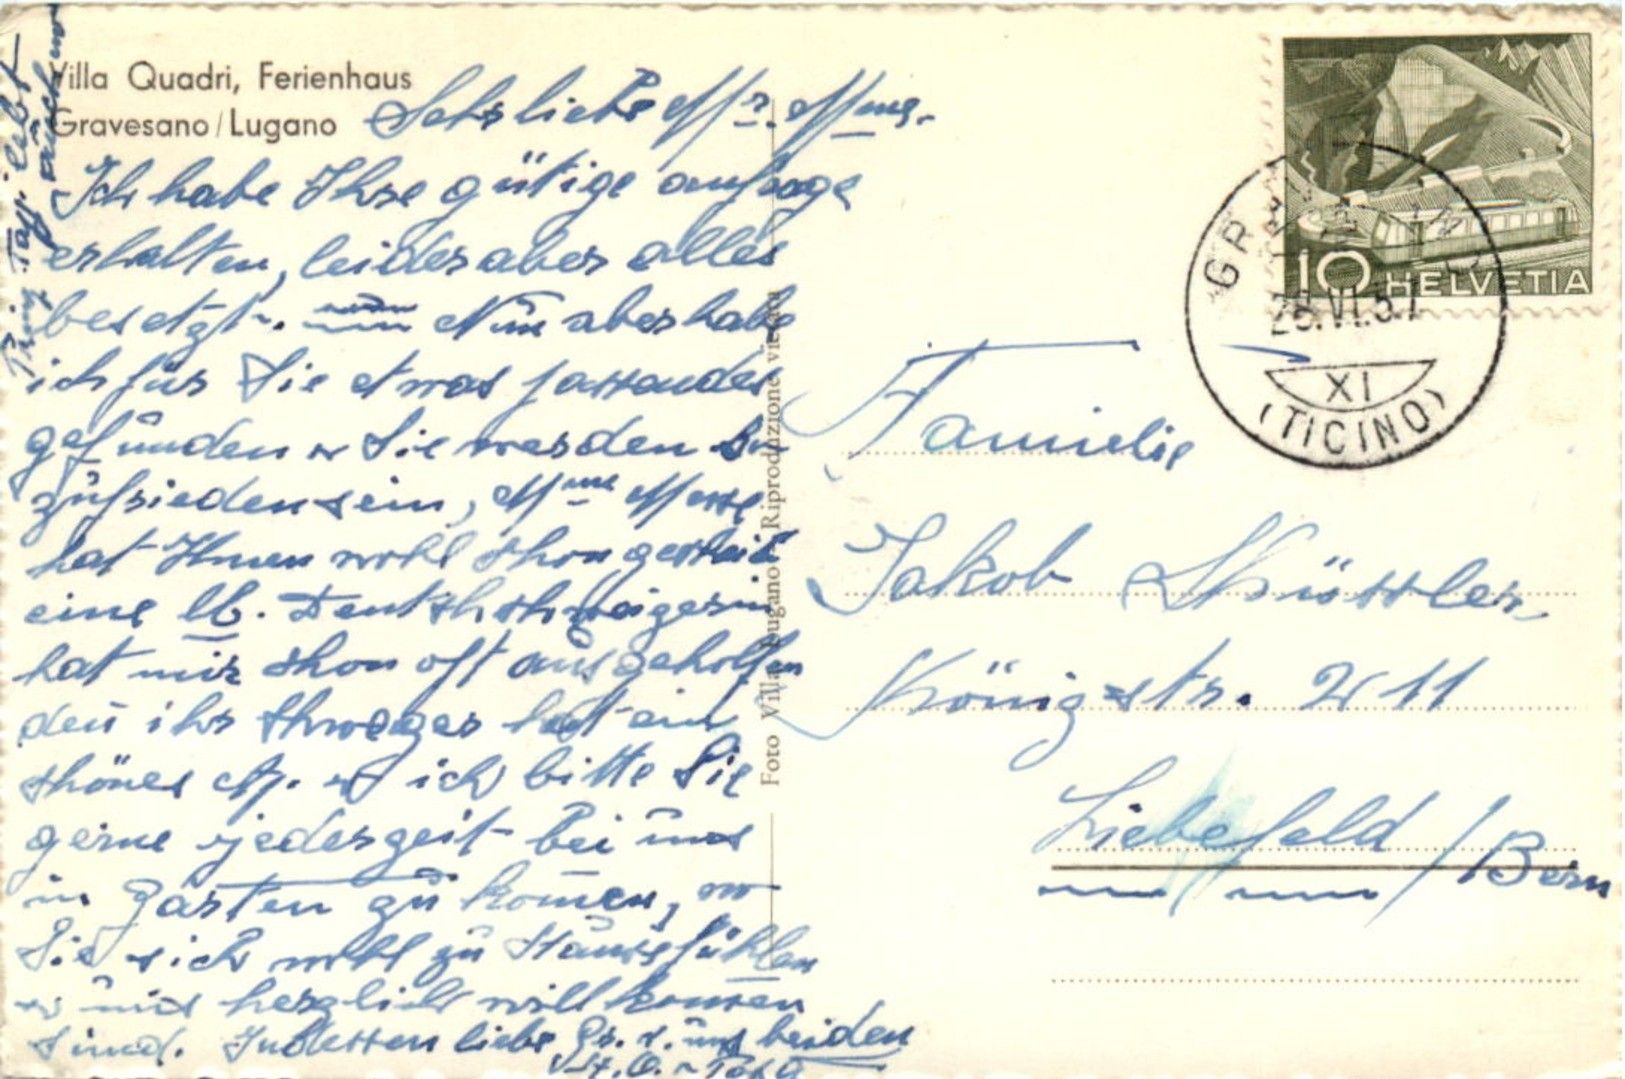 Villa Quadri, Ferienhaus
Gravesano/Lugano
Sehr liebe Mr. Mme.
Ich habe Ihre gütige anfrage
erhalten, leider aber alles
besetzt. Nun aber habe
ich für Sie etwas passendes
gefunden Sie werden
zufrieden sein, Mme
hat Ihnen wohl schon
eine lb. Deutschschweizerin
hat mir schon oft ausgeholfen
den ihr Schwager hat ein
schönes ich bitte Sie
gerne jederzeit bei uns
in Garten zu komen, wo
Sie sich wohl zu Hause fühlen
uns herzlich willkommen
sind. Indessen liebe Gr. v. uns beiden
Foto Villa Lugano Riproduzione vietata
HELVETIA
10
XI
(TICINO)
Familie
Jakob
Königstr. 11
Liebefeld / Bern